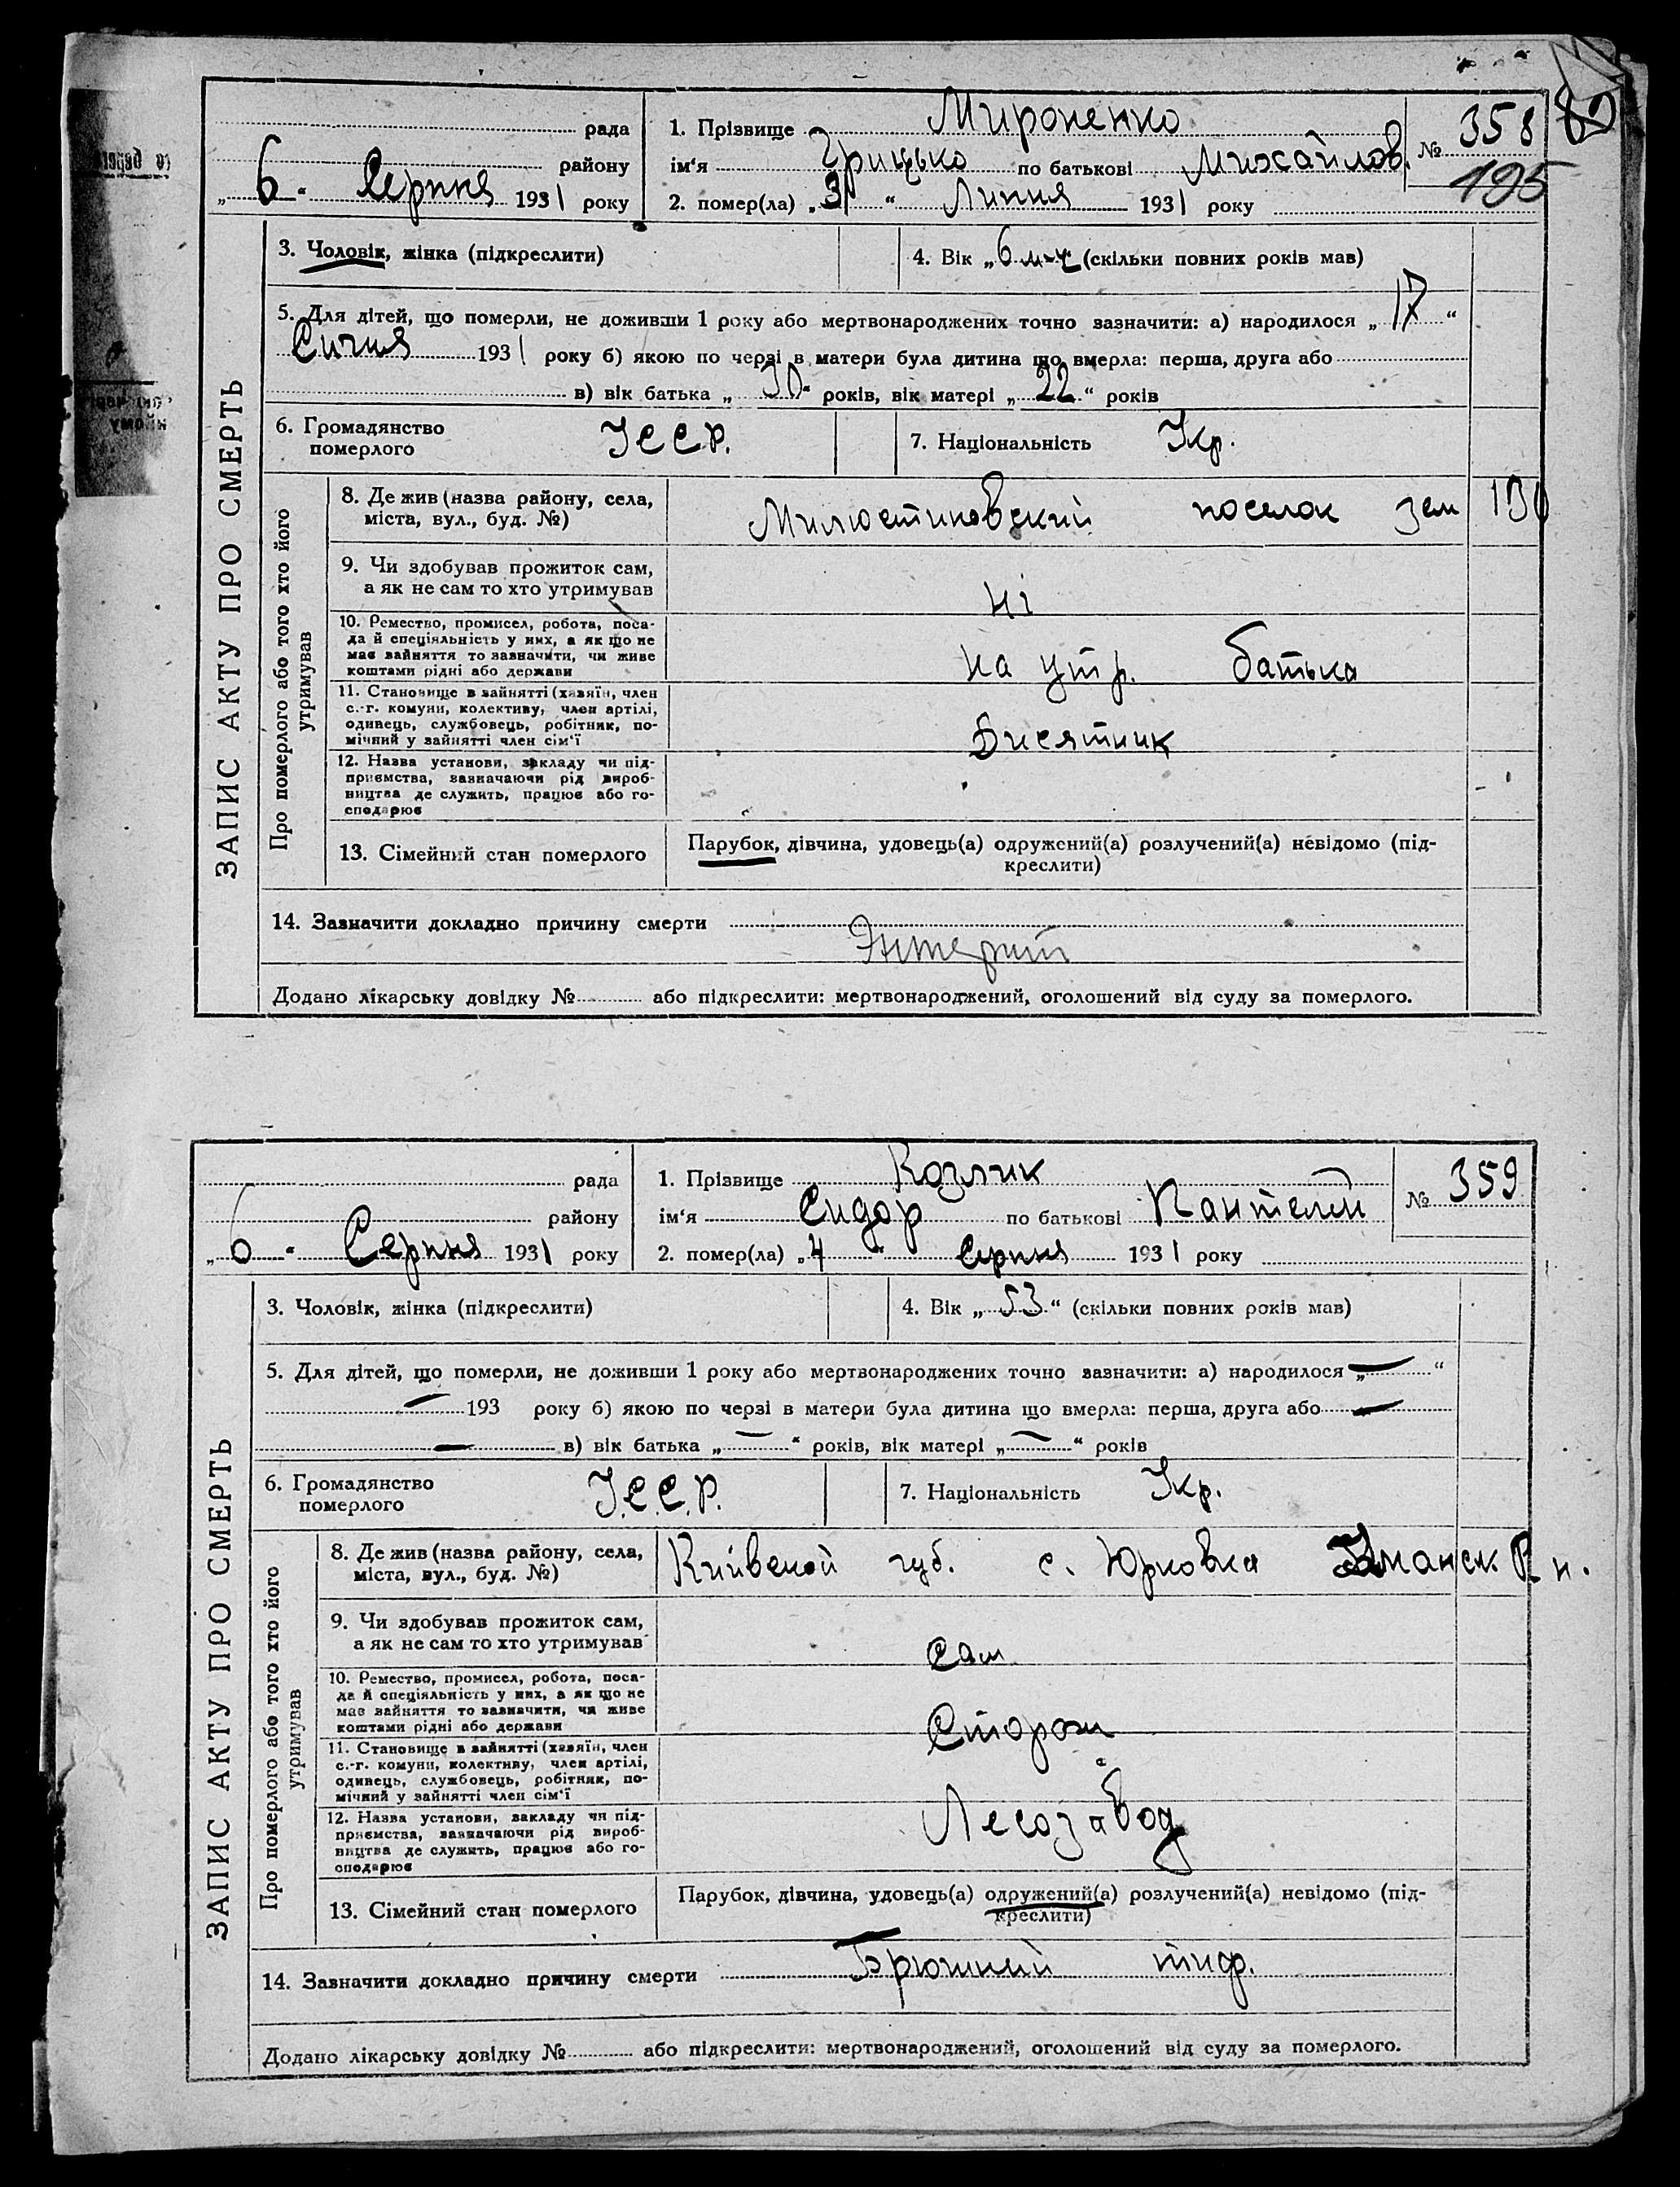 82
рада
1. Прізвище Мироненко
№ 358
району
ім'я Грицько по батькові Михайлов.
195
„6" Серпня 1931 року
2. помер(ла) „31" Липня 1931 року
3. Чоловік, жінка (підкреслити)
4. Вік „6 м-ц (скільки повних років мав)
5. Для дітей, що померли, не доживши 1 року або мертвонароджених точно зазначити: а) народилося „17"
Сичня 1931 року б) якою по черзі в матери була дитина що вмерла: перша, друга або
в) вік батька „30" років, вік матері „22" років
6. Громадянство
померлого
УССР.
7. Національність Укр.
ЗАПИС АКТУ ПРО СМЕРТЬ
Про померлого або того хто його
утримував
8. Де жив (назва району, села,
міста, вул., буд. №)
Милюстиновский поселок зем 130
9. Чи здобував прожиток сам,
а як не сам то хто утримував
Ні
10. Ремество, промисел, робота, поса-
да й спеціяльність у них, а як що не
має зайняття то зазначити, чи живе
коштами рідні або держави
на утр. батька
11. Становище в зайнятті (хазяїн, член
с.-г. комуни, колективу, член артілі,
одинець, службовець, робітник, по-
мічний у зайнятті член сім'ї
Висятник
12. Назва установи, закладу чи під-
приємства, зазначаючи рід вироб-
ництва де служить, працює або го-
сподарює
13. Сімейний стан померлого
Парубок, дівчина, удовець(а) одружений(а) розлучений(а) невідомо (під-
креслити)
14. Зазначити докладно причину смерти
Энтерит
Додано лікарську довідку № або підкреслити: мертвонароджений, оголошений від суду за померлого.
рада
1. Прізвище Козлик
№ 359
району
ім'я Сидор по батькові Пантелій
„6" Серпня 1931 року
2. помер(ла) „4" Серпня 1931 року
3. Чоловік, жінка (підкреслити)
4. Вік „53" (скільки повних років мав)
5. Для дітей, що померли, не доживши 1 року або мертвонароджених точно зазначити: а) народилося „—"
— 193 року б) якою по черзі в матери була дитина що вмерла: перша, друга або —
— в) вік батька „—" років, вік матері „—" років
6. Громадянство
померлого
У.С.С.Р.
7. Національність Укр.
ЗАПИС АКТУ ПРО СМЕРТЬ
Про померлого або того хто його
утримував
8. Де жив (назва району, села,
міста, вул., буд. №)
Київской губ. с. Юрковка Уманск. Р н.
9. Чи здобував прожиток сам,
а як не сам то хто утримував
Сам
10. Ремество, промисел, робота, поса-
да й спеціяльність у них, а як що не
має зайняття то зазначити, чи живе
коштами рідні або держави
Сторож
11. Становище в зайнятті (хазяїн, член
с.-г. комуни, колективу, член артілі,
одинець, службовець, робітник, по-
мічний у зайнятті член сім'ї
12. Назва установи, закладу чи під-
приємства, зазначаючи рід вироб-
ництва де служить, працює або го-
сподарює
Лесозавод
13. Сімейний стан померлого
Парубок, дівчина, удовець(а) одружений(а) розлучений(а) невідомо (під-
креслити)
14. Зазначити докладно причину смерти Брюшний тиф.
Додано лікарську довідку № або підкреслити: мертвонароджений, оголошений від суду за померлого.